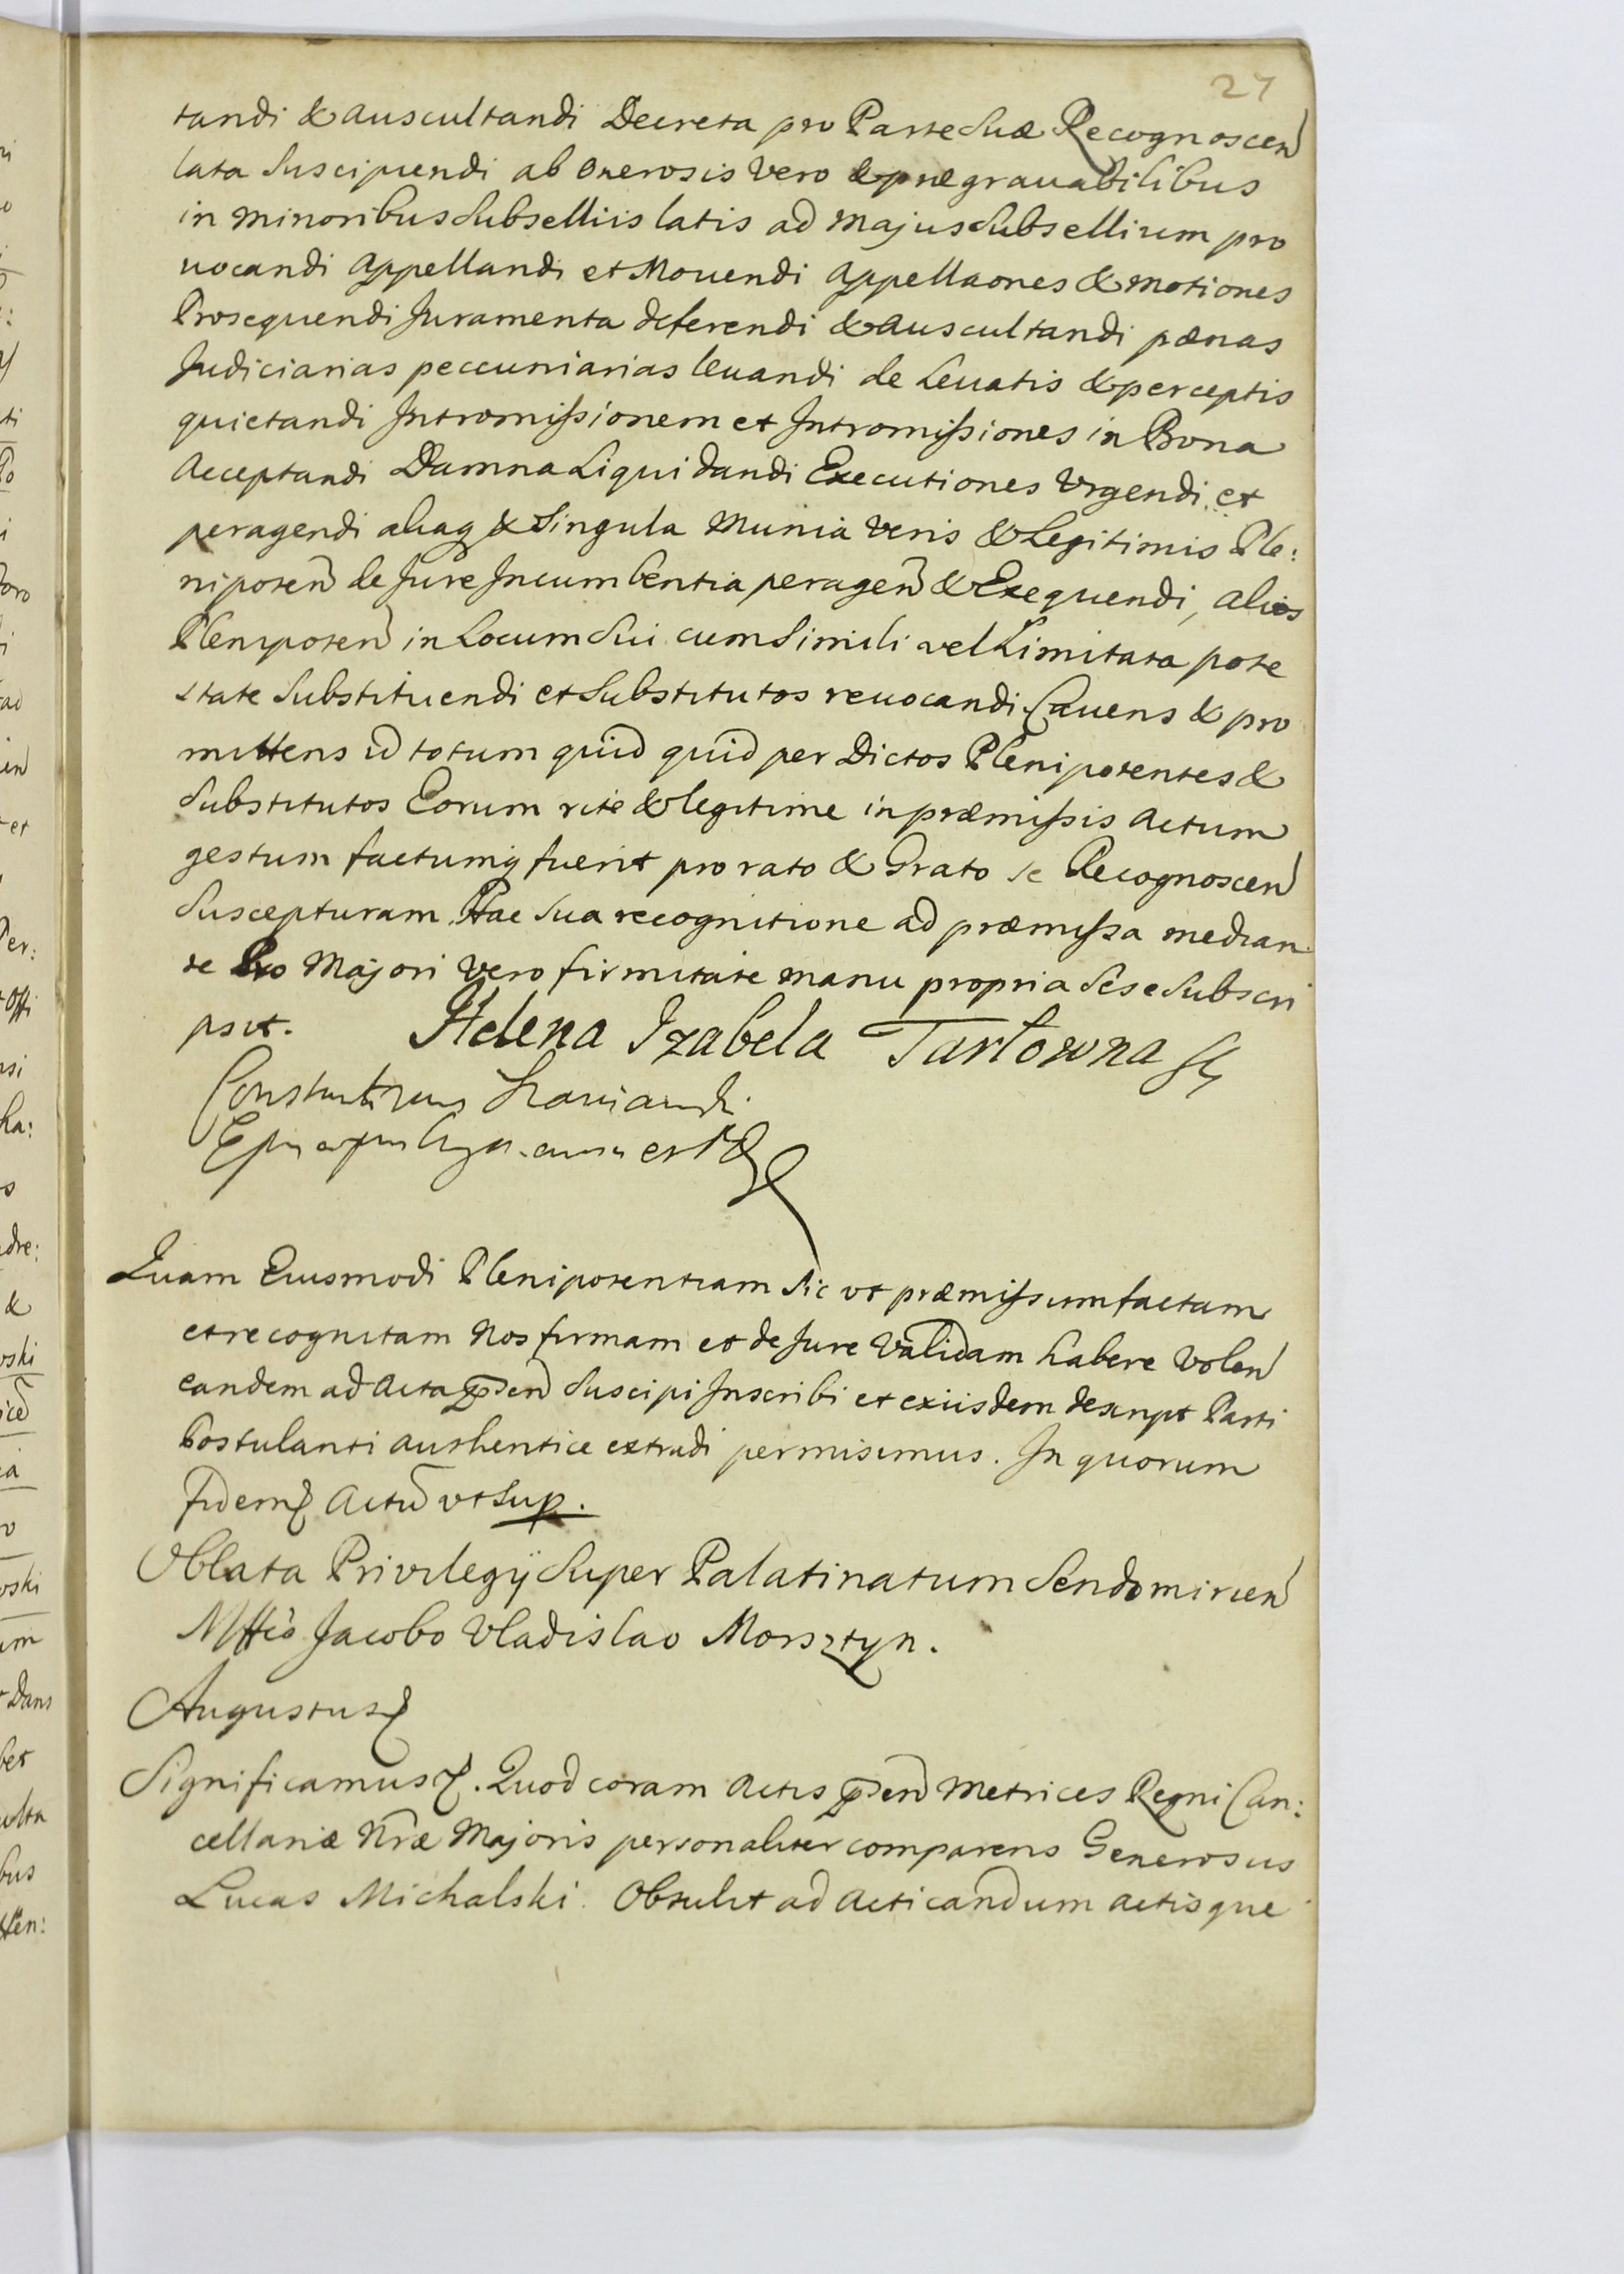 27
tandi & auscultandi Decreta pro Parte Suæ Recognoscen
lata Suscipiendi ab onerosis vero & prægrauabilibus
in minoribus Subselliis latis ad majus Subsellium pro
uocandi appellandi et Mouendi appellaones & motiones
Prosequendi Juramenta deferendi & auscultandi pænas
Judiciarias peccuniarias leuandi de Leuatis & perceptis
quietandi Intromissionem et Intromissiones in Bona
Acceptandi Damna Liquidandi Executiones Vrgendi et
peragendi aliaq & Singula Munia veris & Legitimis Ple:
nipoten de Jure Incumbentia peragen & Exequendi, alios
Plenipoten in Locum Sui cum Simili vel Limitata pote
state Substituendi et Substitutos reuocandi Cauens & pro
mittens id totum quid quid per Dictos Plenipotentes &
Substitutos Eorum rite & legitime in præmissis actum
gestum factumq fuerit pro rato & Grato se Recognoscen
Suscepturam Hac Sua recognitione ad præmissa median
te Pro Majori vero firmitate manu propria Sese Subscri
psit. Helena Izabela Tarłowna
Quam Eiusmodi Plenipotentiam Sic vt præmissum factam
et recognitam Nos firmam et de Jure Validam habere Volen
eandem ad Acta psen Suscipi Inscribi et ex iisdem descript Parti
Postulanti authentice extradi permisimus. In quorum
fidem Actu vt Sup.
Oblata Privilegÿ Super Palatinatum Sendomirien
Mffco Jacobo Vladislao Morsztyn.
Augustus
Significamus. Quod coram Actis psen Metrices Regni Can:
cellariæ Nræ Majoris personaliter comparens Generosus
Lucas Michalski. Obtulit ad Acticandum actisque